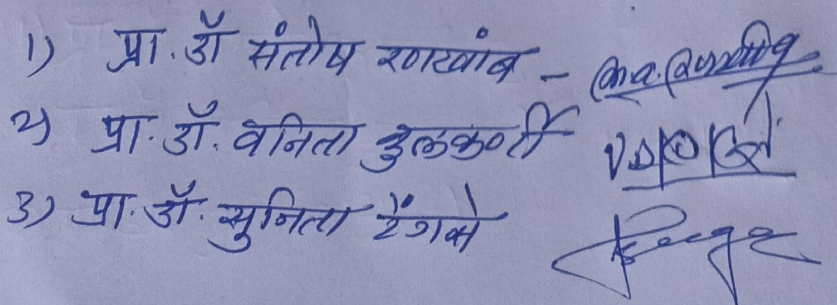 1) प्रा. डॉ संतोष रणखांब -
२) प्रा. डॉ. वनिता कुलकर्णी
3) प्रा. डॉ. सुनिता टेंगसे